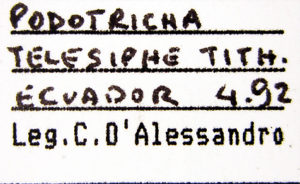 PODOTRICHA
TELESIPHE TITH.
ECUADOR 4.92
Leg.C.D'Alessandro